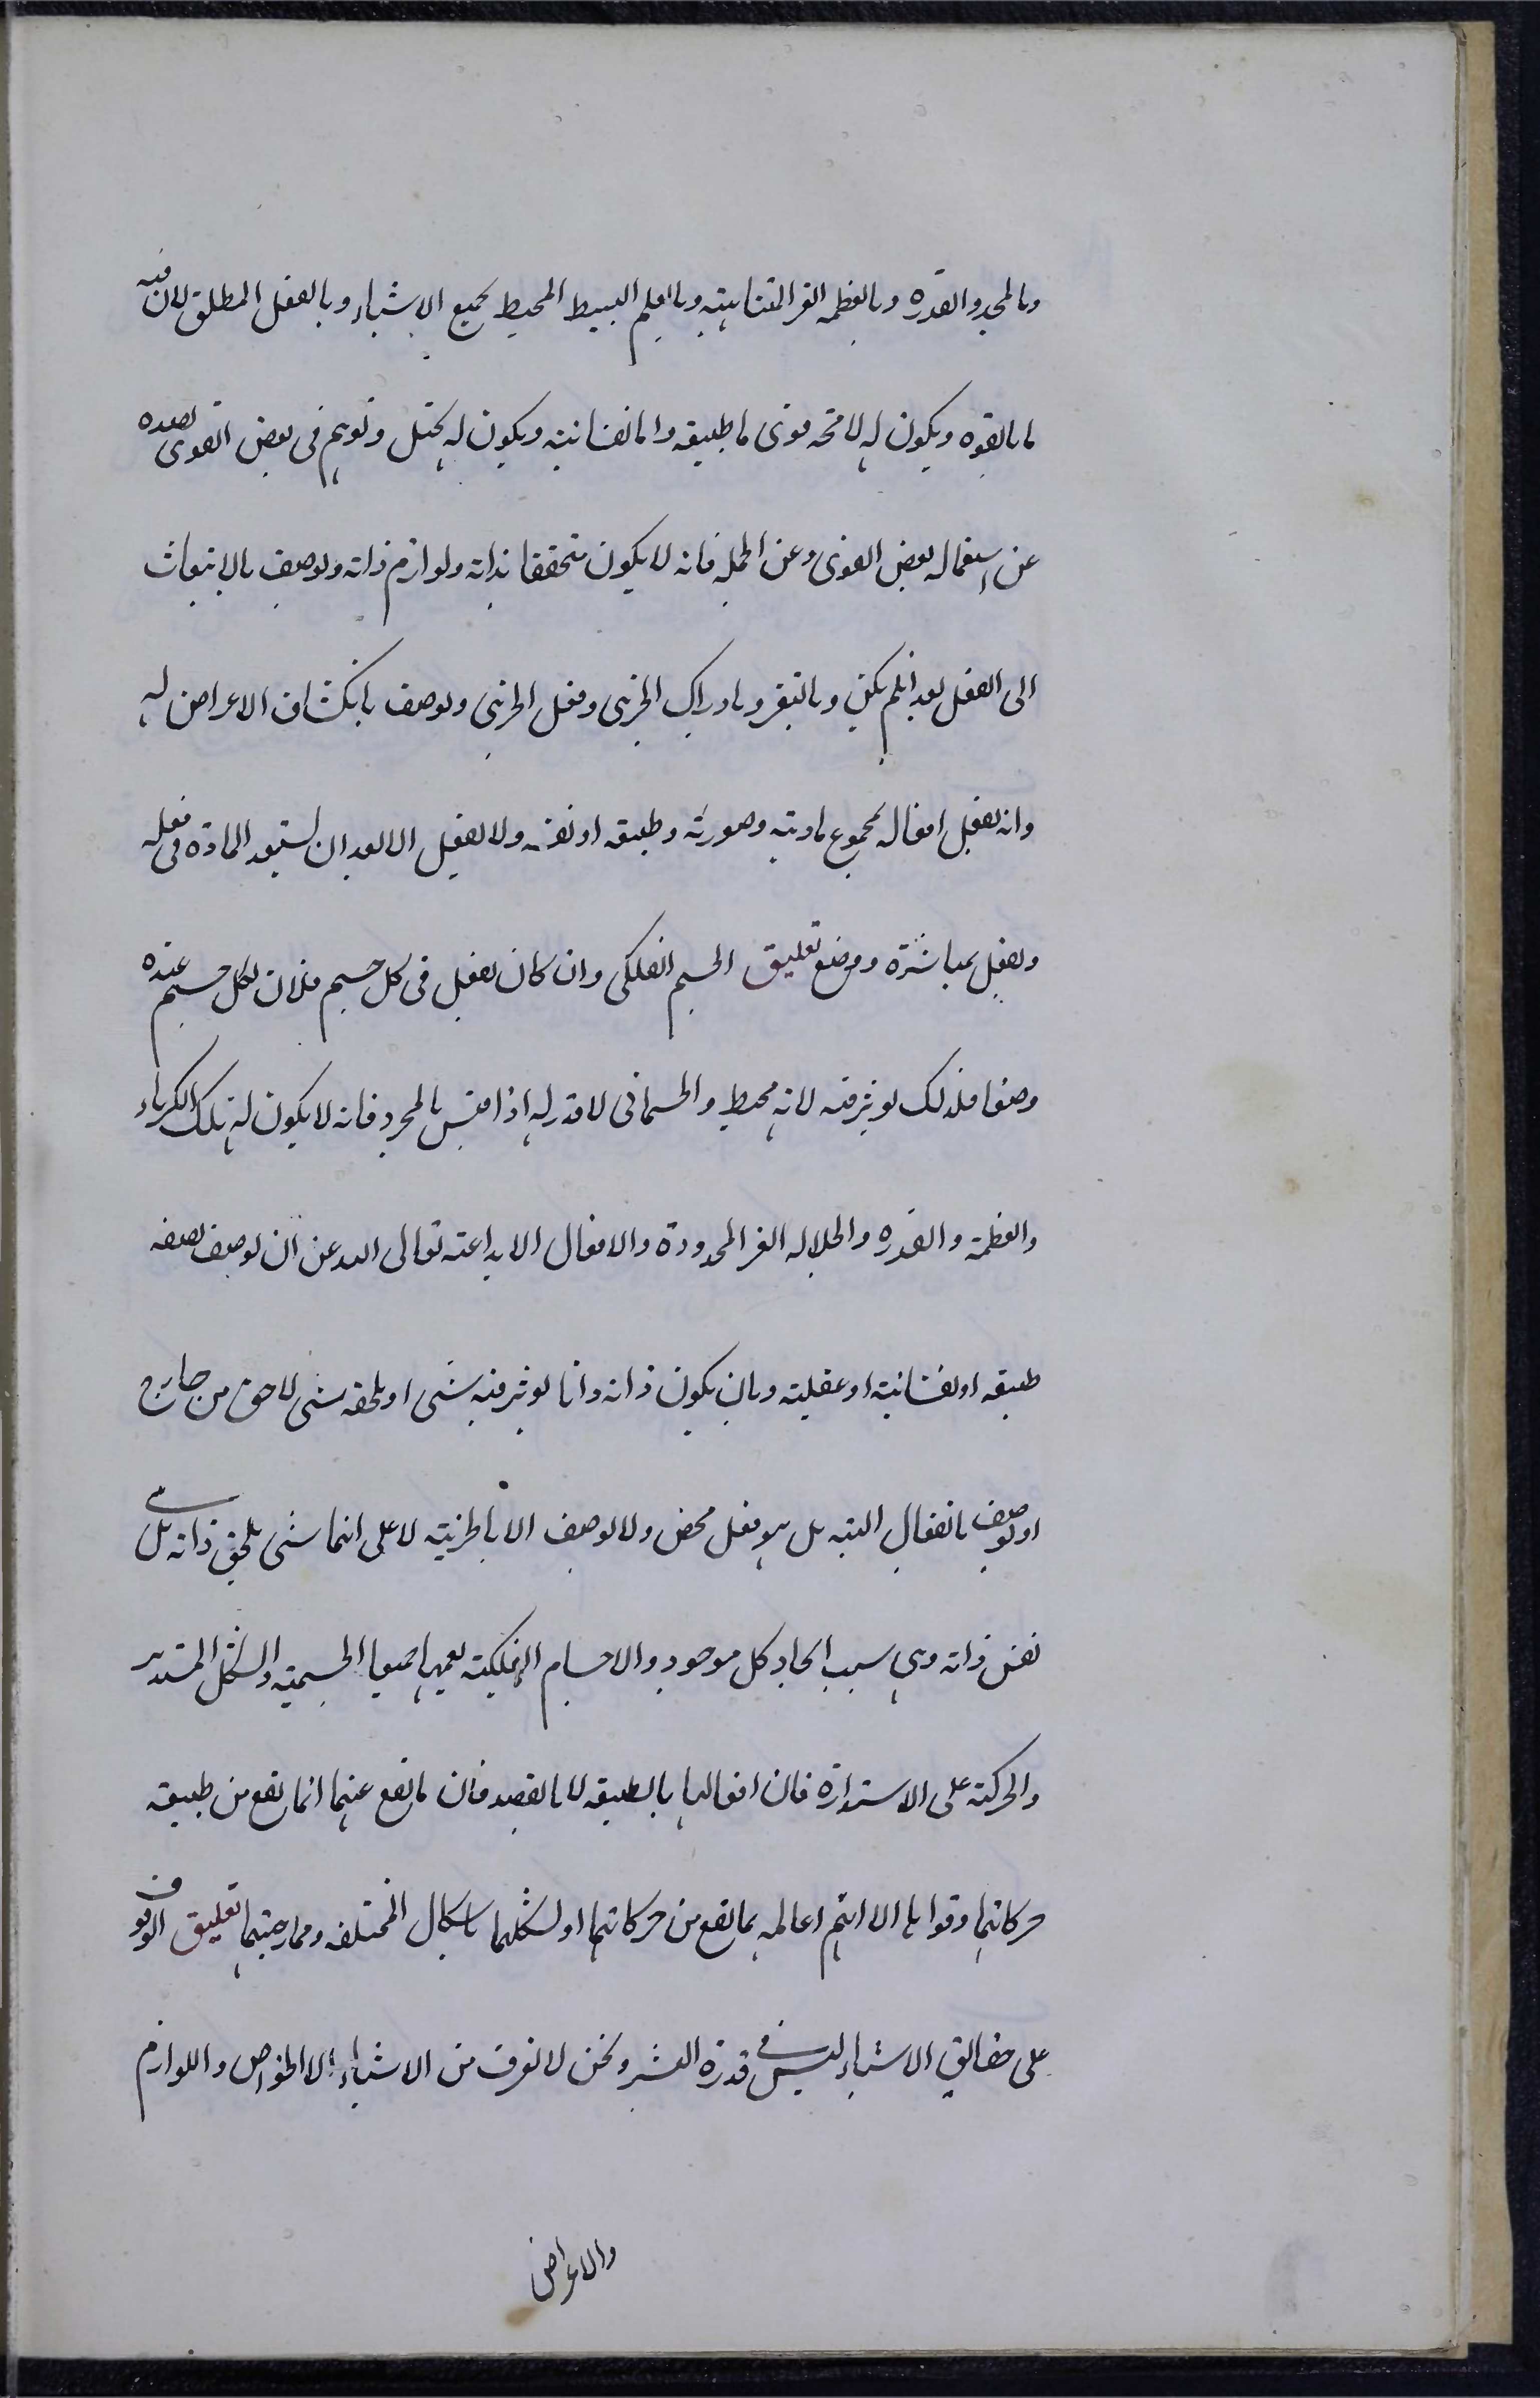 وبالمجد والقدرة وبالعظمة الغير المتناهية وبالعلم البسيط المحيط بجميع الاشياء وبالفعل المطلق لان فيه
ما بالقوه ويكون له لا محة قوى ما طبيعة واما نفسانية ويكون له تخيل وتوهم فى بعض القوى تصده
عن استعماله بعض القوى وعن الجملة فانه لا يكون متحققا بذاته ولوازم ذاته ويوصف بالانبعاث
الى الفعل بعد انلم يكن وبالتغير وبادراك الجزئى وفعل الجزئى ويوصف بانكشاف الاعراض له
وانه يفعل افعاله بمجموع مادته وصورته وطبيعة او نفسه ولا يفعل الا بعد ان يستعد المادة فى فعله
ويفعل بمباشرة ووضع تعليق الجسم الفلكى وان كان يفعل فى كل جسم فلان لكل جسم عنده
وضعا فلذلك يوثر فيه لانه محيط والجسمانى لا قدر له اذا قيس بالمجرد فانه لا يكون له تلك الكبرياء
والعظمة والقدره والجلاله الغير المحدودة والافعال الابداعية تعالى الله عن ان يوصف بصفه
طبيعة او نفسانية او عقلية وبان يكون ذاته ذاتا يوثر فيه شى او يلحقه شى لاحق من خارج
او يوصف بانفعال البته بل هو فعل محض ولا يوصف الا بالخيرية لا على انها شى يلحق ذاته بل هى
نفس ذاته وهى سبب ايجاد كل موجود والاجسام الفلكية يعمها جميعا الجسمية والشكل المستدير
والحركة على الاستدارة فان افعالها بالطبيعة لا بالقصد فان ما يقع عنها انما يقع من طبيعة
حركاتها وقواها الا انها عالمه بما يقع من حركاتها او لتشكلها باشكال المختلفه وممازجتها تعليق الوقوف
على حقائق الاشياء ليس فى قدرة البشر ونحن لا نعرف من الاشياء الا الخواص واللوازم
والاعراض